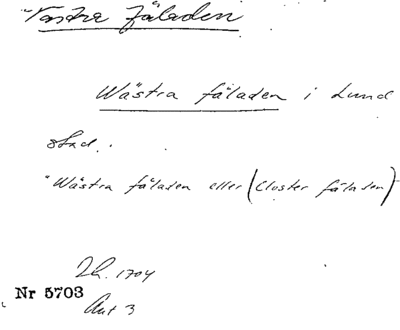 "Västra fäladen
Wästra fäladen i Lund
stad.
"Wästra fäladen eller (Closter fäladen)
Lh. 1704
Nr 5703
Akt 3